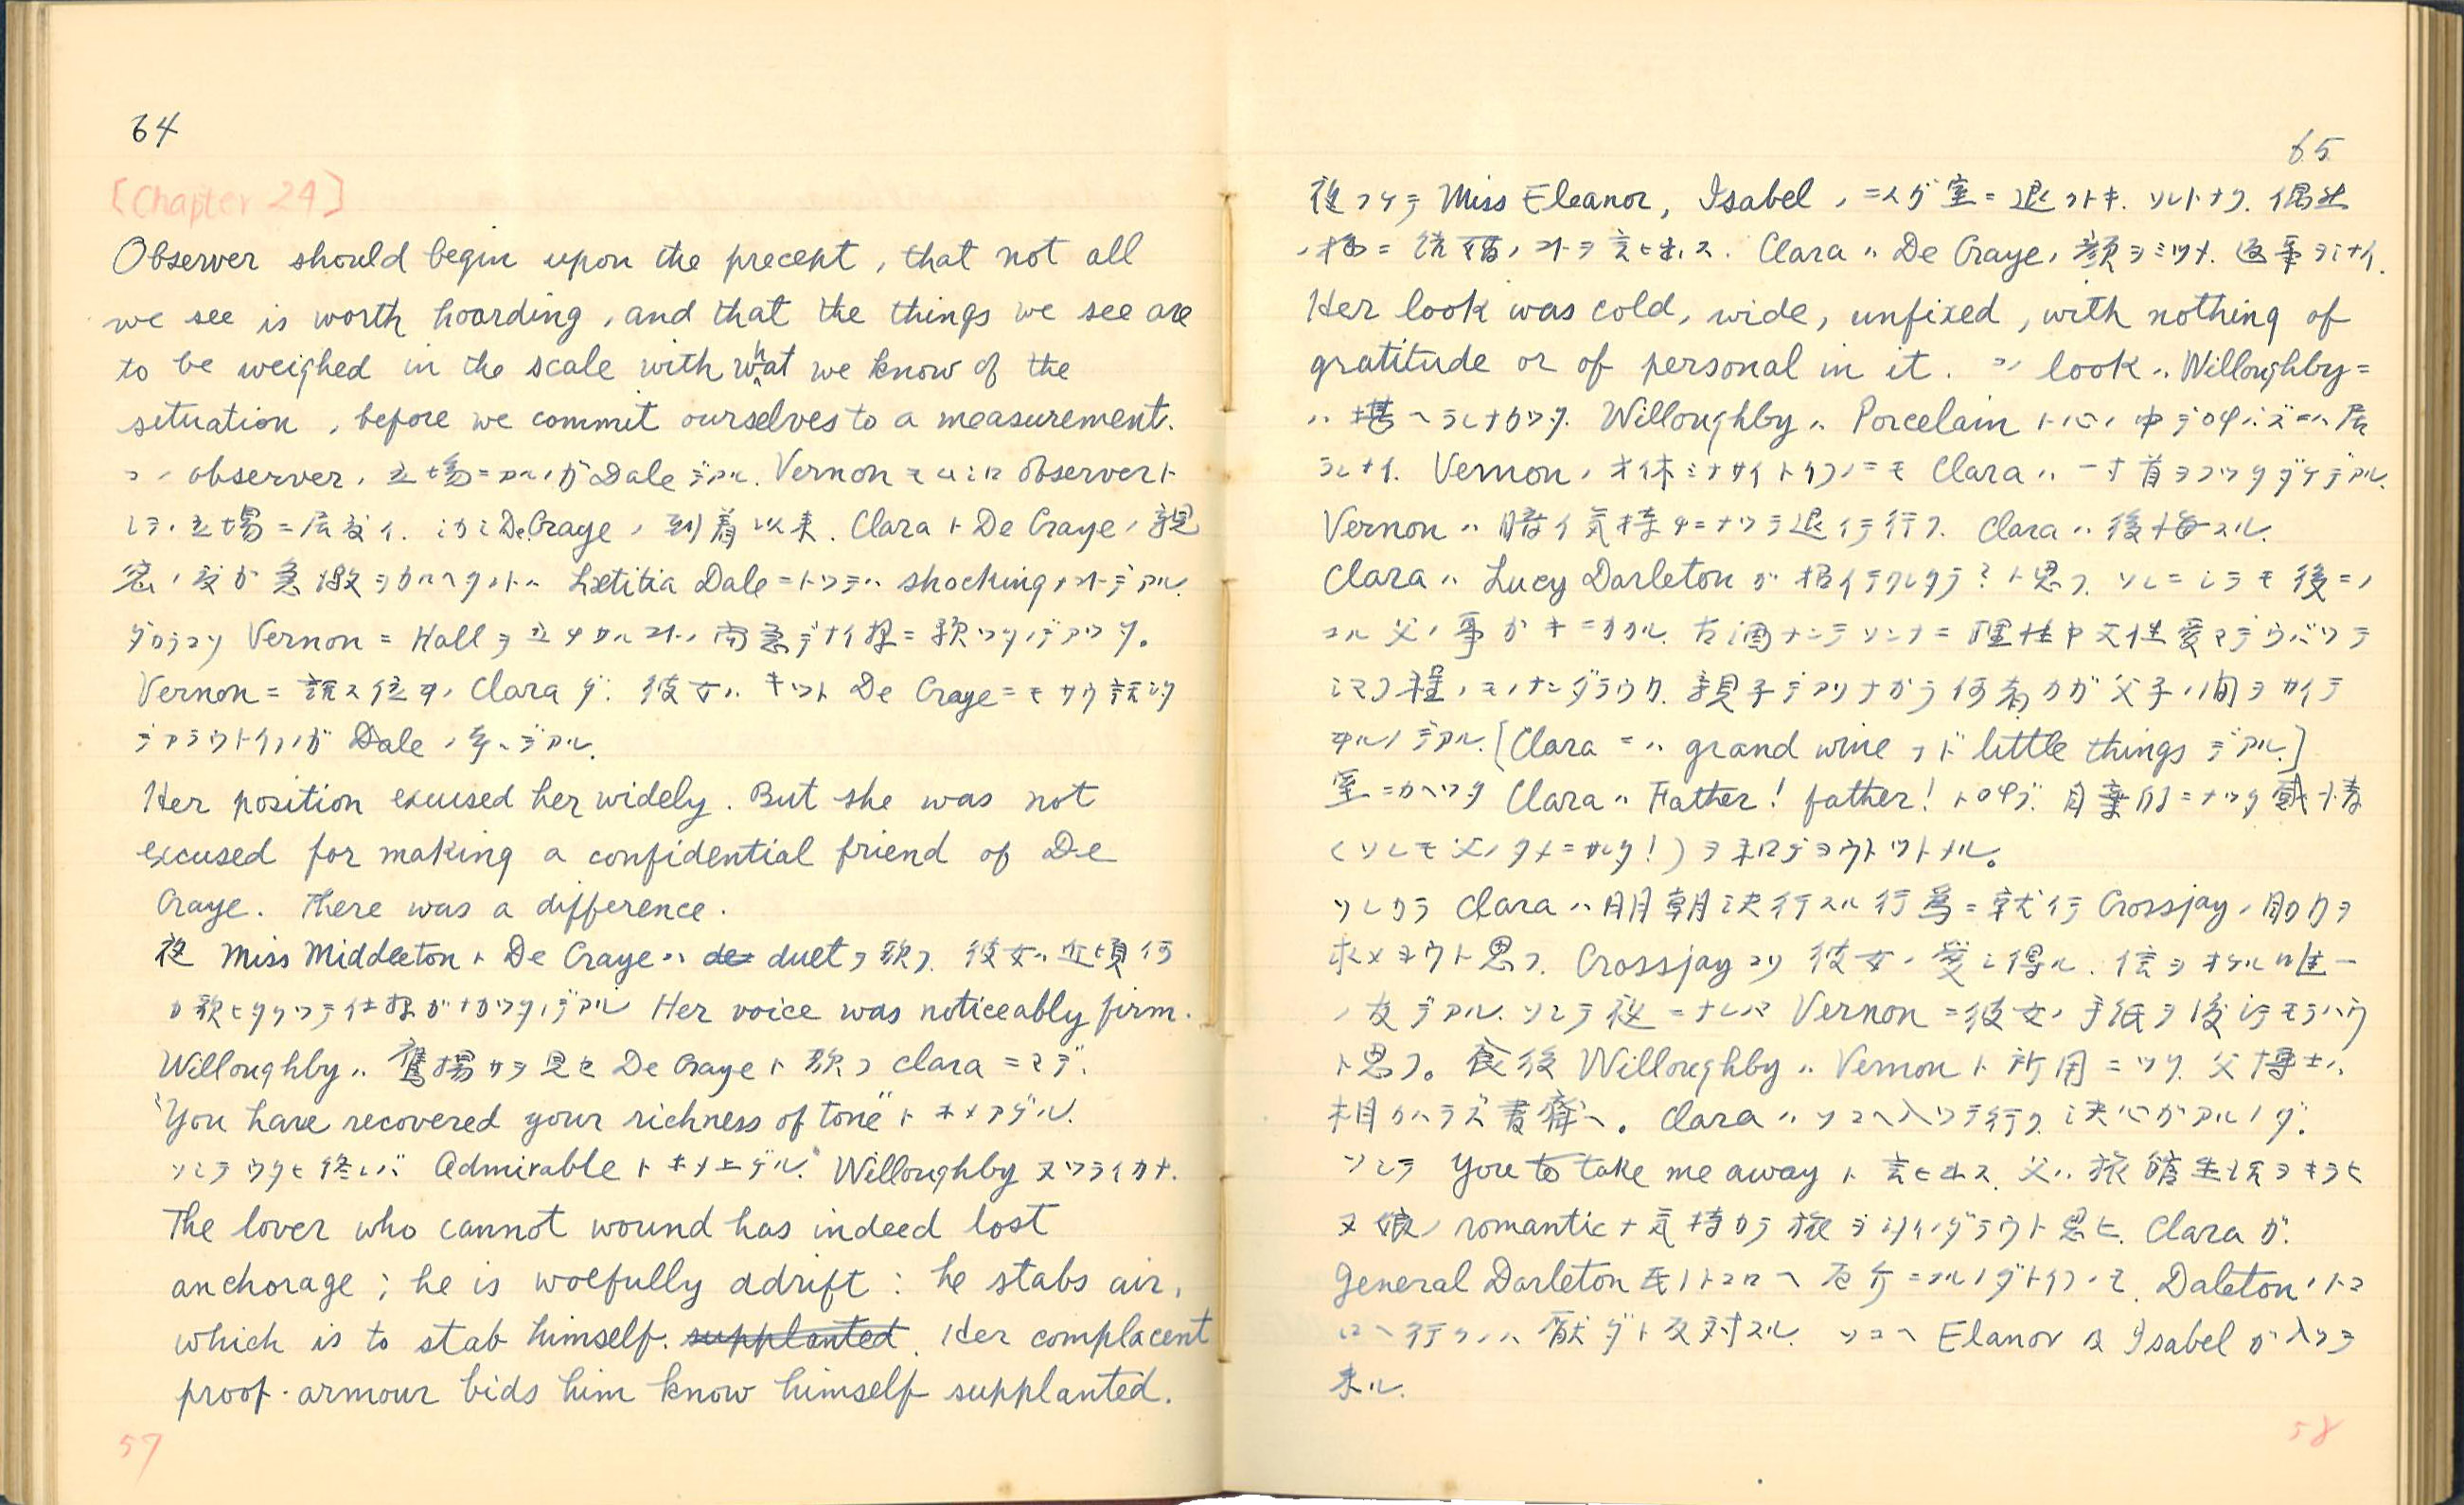 64
[Chapter 24]
Observer should begin upon the precept, that not all
we see is worth hoarding, and that the things we see are
to be weighed in the scale with what we know of the
situation, before we commit ourselves to a measurement.
コノ observer ノ立場ニアルノガ Dale デアル. Vernon モムシロ observer ト
シテノ立場ニ居ル. シカシ De Craye ノ到着以来. Clara ト De Craye ノ親
密ノ度ガ急激ヲ Lætitia Dale ニトッテハ shocking ナコトデアル.
ダカラコソ Vernon ニ Hall ヲ立チサルコトノ
Vernon ニ話ス位ヰノ Clara ダ. 彼女ハ キット De Craye ニモサウ話シタ
デアラウトイフノガ Dale ノ考ヘデアル.
Her position excused her widely. But she was not
excused for making a confidential friend of De
Craye. There was a difference.
夜 Miss Middleton ト De Craye ハ duet ヲ歌フ. 彼女ハ近頃何
カ歌ヒタクッテ仕様ガナカッタノデアル Her voice was noticeably firm.
Willoughby ハ鷹揚サヲ見セ De Craye ト歌フ Clara ニマデ.
"You have recovered your richness of tone" トホメアゲル.
ソシテウタヒ終レバ Admirable トホメ上ゲル. Willoughby
The lover who cannot wound has indeed lost
anchorage; he is woefully adrift: he stabs air,
which is to stab himself. supplanted. Her complacent
proof-armour bids him know himself supplanted.
57
65
夜フケテ Miss Eleanor, Isabel ノ 室ニ退クトキ. ソレトナク. 偶然
Clara ハ De Craye ノ顔ヲミツメ. 返事ヲシナイ.
Her look was cold, wide, unfixed, with nothing of
gratitude or of personal in it. コノ look ハ Willoughby ニ
ハ堪ヘラレナカッタ. Willoughby ハ Porcelain ト心ノ中デ呼バズニハ居
ラレナイ. Vernon ノオ休ミナサイトイフノニモ Clara ハ一寸首ヲフッタダケデアル.
Vernon ハ暗イ気持チニナッテ退イテ行ク. Clara ハ後悔スル.
Clara ハ Lucy Darleton ガ招イテクレタラ? ト思フ. ソレニシテモ後ニノ
コル父ノ事ガキニカカル. 古酒ナンテソンナニ理性ヤ父性愛マデウバッテ
シマフ程ノモノナンダラウカ. 親子デアリナガラ何者カガ父子ノ間ヲ
ヰルノデアル. [Clara ニハ grand wine ナド little things デアル.]
室ニカヘッタ Clara ハ Father! father! ト呼ブ. 自棄的ニナッタ感情
(ソレモ父ノタメニサレタ!) ヲ和ゲヨウトツトメル。
ソレカラ Clara ハ明朝決行スル行為ニ就イテ Crossjay ノ助力ヲ
求メヨウト思フ. Crossjay コソ彼女ノ愛シ得ル. 信ヲオケル唯一
ノ友デアル. ソシテ夜ニナレバ Vernon ニ彼女ノ手紙ヲ渡シテモラハウ
ト思フ。食後 Willoughby ハ Vernon ト所用ニツク. 父博士ハ
相カハラズ書斎ヘ。Clara ハソコヘ入ッテ行ク. 決心ガアルノダ.
ソシテ You to take me away ト言ヒ出ス. 父ハ旅館生活ヲキラヒ
又娘ノ romantic ナ気持カラ旅ヲシタイノダラウト思ヒ. Clara ガ.
General Darleton 氏ノトコロヘ ノダトイフノモ. Daleton ノトコ
ロヘ行クノハ厭ダト反対スル. ソコヘ Elanor ト Isabel ガ入ッテ
来ル.
58